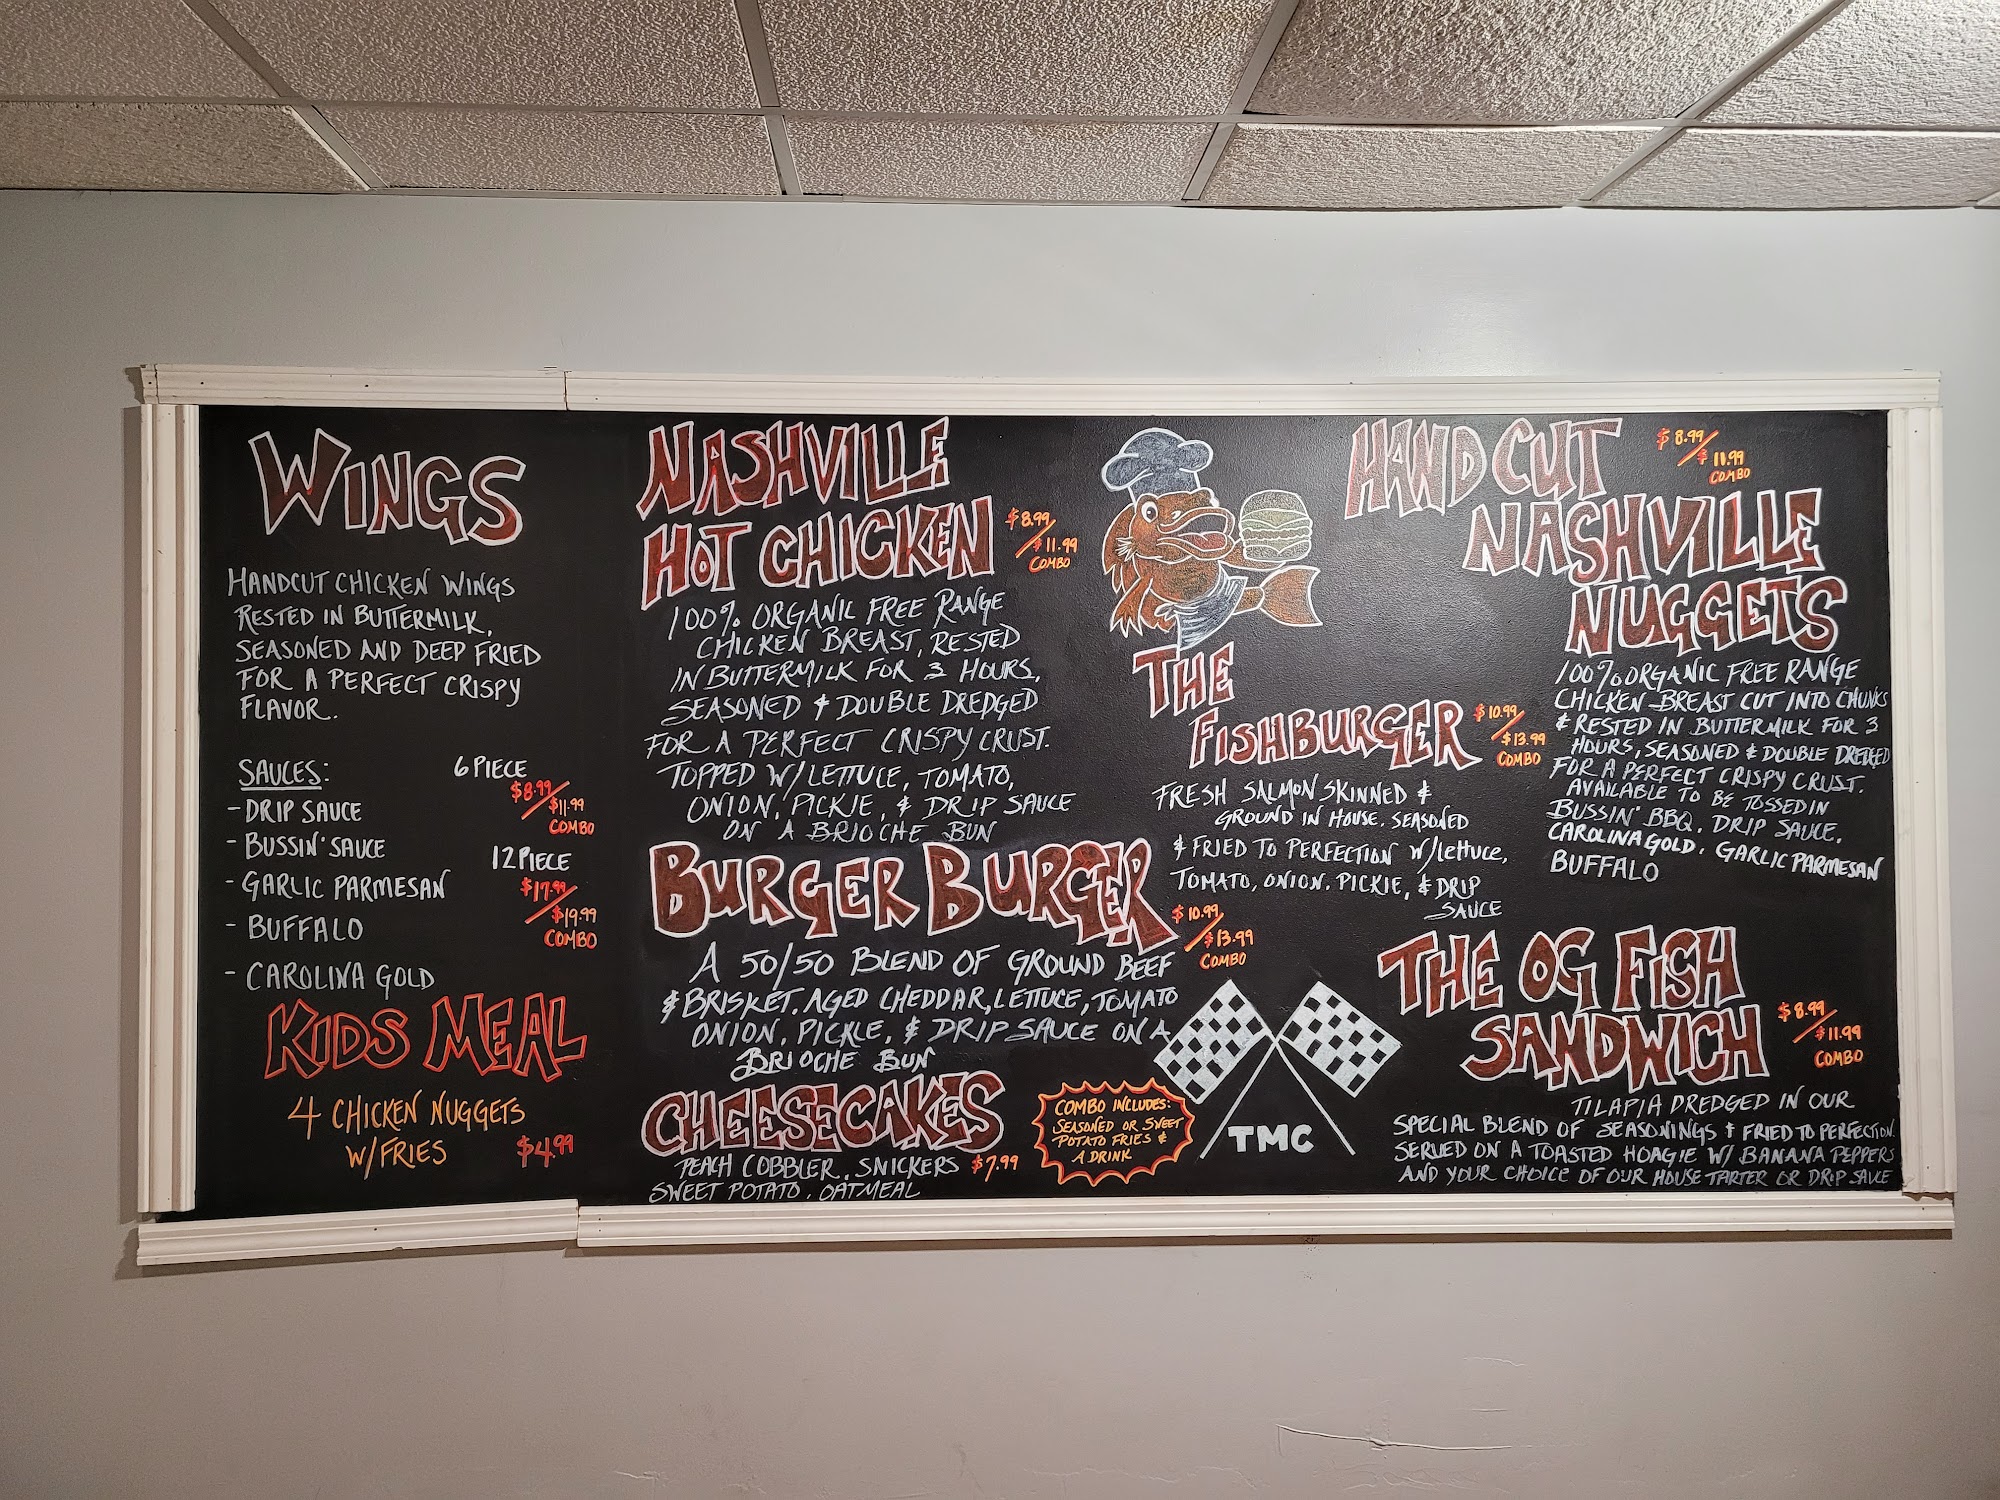 WINGS
HANDCUT CHICKEN WINGS
RESTED IN BUTTERMILK,
SEASONED AND DEEP FRIED
FOR A PERFECT CRISPY
FLAVOR.
SAUCES:
- DRIP SAUCE
- BUSSIN' SAUCE
- GARLIC PARMESAN
- BUFFALO
- CAROLINA GOLD
6 PIECE
$8.99/$11.99
COMBO
12 PIECE
$17.99/$19.99
COMBO
KIDS MEAL
4 CHICKEN NUGGETS
W/FRIES $4.99
NASHVILLE
HOT CHICKEN
$8.99/$11.99
COMBO
100% ORGANIC FREE RANGE
CHICKEN BREAST, RESTED
IN BUTTERMILK FOR 3 HOURS,
SEASONED & DOUBLE DREDGED
FOR A PERFECT CRISPY CRUST.
TOPPED W/LETTUCE, TOMATO,
ONION, PICKLE, & DRIP SAUCE
ON A BRIOCHE BUN
BURGER BURGER
$10.99/$13.99
COMBO
A 50/50 BLEND OF GROUND BEEF
& BRISKET. AGED CHEDDAR, LETTUCE, TOMATO
ONION, PICKLE, & DRIP SAUCE ON A
BRIOCHE BUN
CHEESECAKES
PEACH COBBLER, SNICKERS $7.99
SWEET POTATO, OATMEAL
COMBO INCLUDES:
SEASONED OR SWEET
POTATO FRIES &
A DRINK
THE
FISHBURGER
$10.99/$13.99
COMBO
FRESH SALMON SKINNED &
GROUND IN HOUSE. SEASONED
& FRIED TO PERFECTION W/lettuce,
TOMATO, ONION, PICKIE, & DRIP
SAUCE
TMC
HAND CUT
NASHVILLE
NUGGETS
$8.99/$11.99
COMBO
100% ORGANIC FREE RANGE
CHICKEN BREAST CUT INTO CHUNKS
& RESTED IN BUTTERMILK FOR 3
HOURS, SEASONED & DOUBLE DREDGED
FOR A PERFECT CRISPY CRUST.
AVAILABLE TO BE TOSSED IN
BUSSIN' BBQ, DRIP SAUCE,
CAROLINA GOLD, GARLIC PARMESAN
BUFFALO
THE OG FISH
SANDWICH
$8.99/$11.99
COMBO
TILAPIA DREDGED IN OUR
SPECIAL BLEND OF SEASONINGS & FRIED TO PERFECTION.
SERVED ON A TOASTED HOAGIE W/ BANANA PEPPERS
AND YOUR CHOICE OF OUR HOUSE TARTER OR DRIP SAUCE